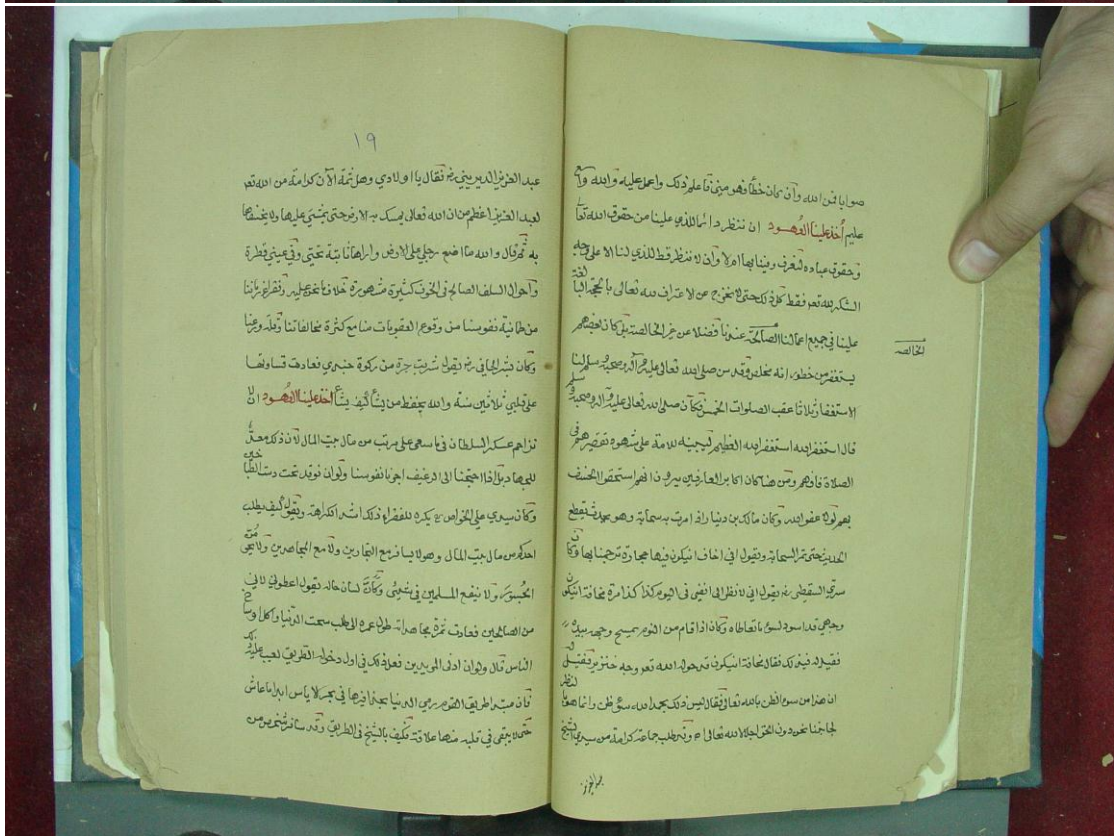 صوابا فمن الله وان كان خطأ فهو مني فاعلم ذلك واعمل عليه والله واسع
عليم أخذ علينا العهود ان ننظر دائما للذي علينا من حقوق الله تعالى
وحقوق عباده لنعرف وفينا بها ام لا وان لا ننظر قط للذي لنا الا على وجه
الشكر لله تعـ فقط كل ذلك حتى لا نخرج عن الاعتراف لله تعالى بالحجة البالغة
علينا في جميع اعمالنا الصالحة عندنا فضلا عن غير الخالصة بل كان بعضهم
الخالصه
يستغفر من خطوره انه مخلص وقد سن صلى الله تعالى عليه وآله وصحبه وسلم لنا
الاستغفار ثلاثا عقب الصلوات الخمس فكان صلى الله تعالى عليه وآله وصحبه وسلم
قال استغفر الله استغفر الله العظيم تنبيه للامة على شهود تقصيرهم في
الصلاة فافهم ومن هنا كان اكابر العارفين يرون انهم استحقوا الخسف
بهم لولا عفو الله وكان مالك بن دينار اذا مرت به سحابة وهو يحدث يقطع
الحديث حتى تمر السحابة ويقول اني اخاف ان يكون فيها حجارة ترجمنا بها وكان
سري السقطي رضـ يقول اني لانظر الى انفي في اليوم كذا كذا مرة مخافة ان يكون
وجهي قد اسود لسوء ما تعاطاه وكان اذا قام من النوم يمسح وجهه بيده
فقيل له في ذلك فقال مخافة ان يكون قد حول الله تعـ وجهه خنزير فقيل له
ان هذا من سوء الظن بالله تعالى فقال ليس ذلك بحمد الله سوء ظن وانما هو بالنظر
لجانبنا نحن دون الحق اجلالا لله تعالى وقد طلب جماعة كرامة من سيدي الشيخ
عبد العزيز
١٩
عبد العزيز الديريني رضـ فقال يا اولادي وهل ثمة الآن كرامة من الله تعـ
لعبد العزيز اعظم من ان الله تعالى يمسك به الارض حتى يمشي عليها ولا يخسفها
به ثم قال والله ما اضع رجلي على الارض واراها ثابتة تحتي وفي عيني قطرة
واحوال السلف الصالح في الخوف كثيرة مشهورة خلاف ما نحن عليه
من طمانية نفوسنا من وقوع العقوبات منا مع كثرة مخالفاتنا
وكان بشر الحافي رضـ يقول شربت جرة من ركوة جندي فعادت قساوتها
على قلبي ثلاثين سنة والله يحفظ من يشأ كيف يشأ أخذ علينا العهود ان لا
نزاحم عسكر السلطان في ما سعى على مرتب من مال بيت المال لان ذلك معد
للجهاد بل اذا احتجنا الى الرغيف اجرنا نفوسنا ولو ان نوقد تحت دست الطباخين
وكان سيدي علي الخواص رضـ يكره للفقراء ذلك اشد الكراهة ويقول كيف يطلب
احدكم من مال بيت المال وهو لا يسافر مع التجارين ولا مع المجاهدين ولا يحمي
ولا ينفع المسلمين في شيئ وكأن لسان حاله يقول اعطوني لاني
من الصالحين فعادت ثمرة مجاهداته طول عمره الى طلب سحت الدنيا واكل اوساخ
الناس قال ولو ان ادنى المريدين فعل ذلك في اول دخوله الطريق لعيب عليه ذلك
فان مبتدا طريق القوم رمي الدنيا بحذافيرها في بحر الاياس ابدا ما عاش
حتى لا يبقى في قلبه منها علاقة فكيف بالشيخ في الطريق وقد سافر شخص من